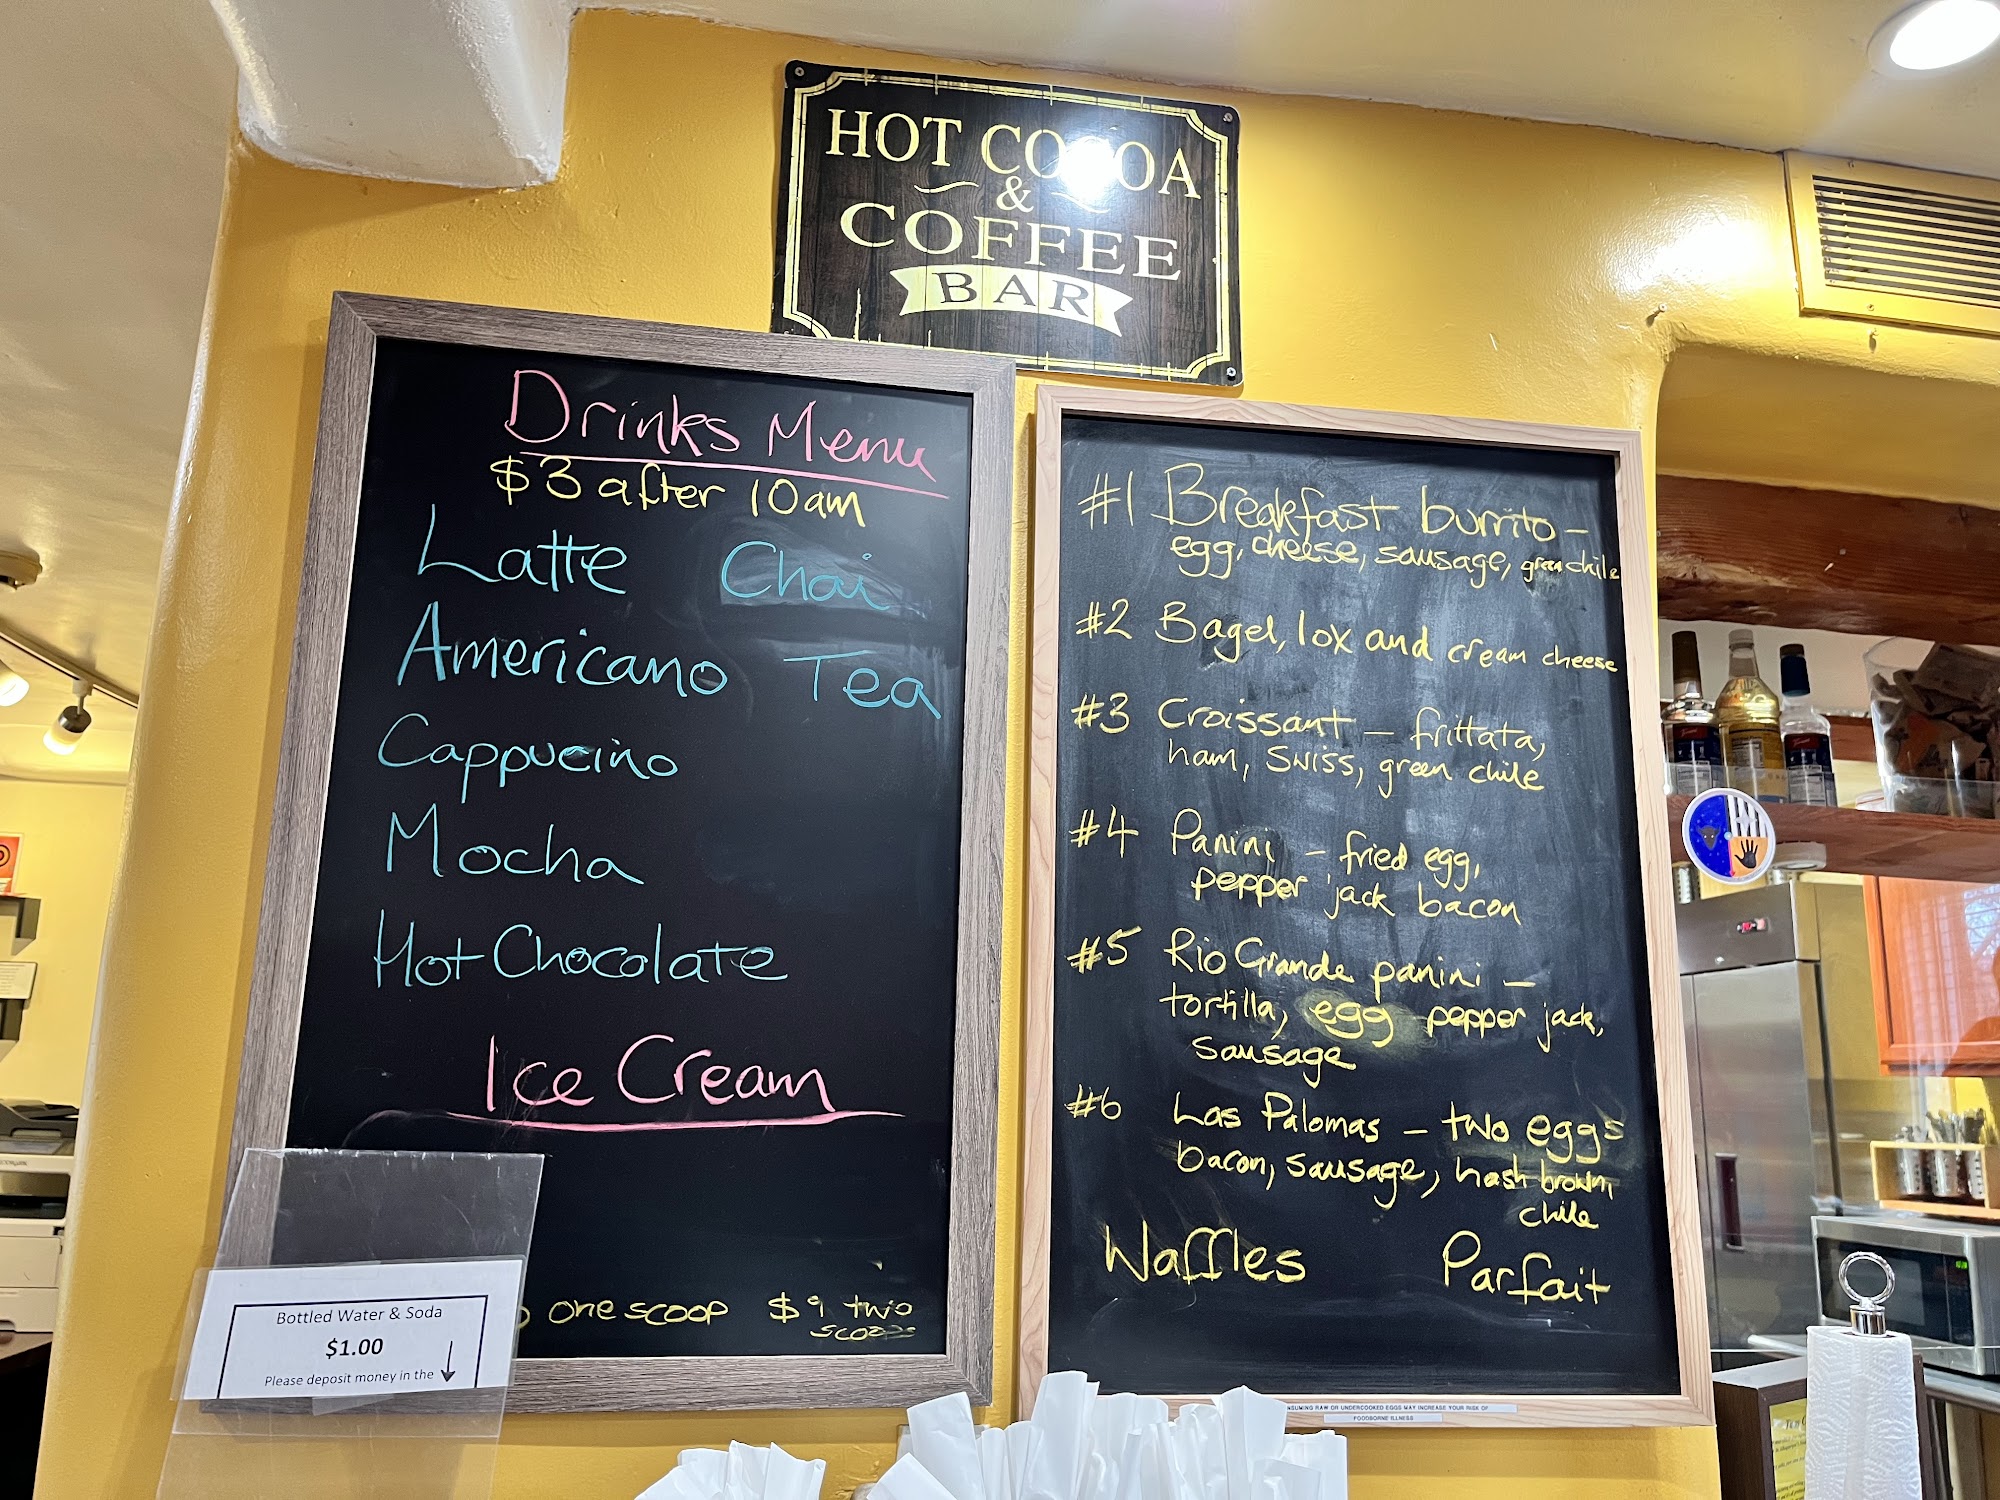 HOT COCOA
&
COFFEE
BAR
Drinks Menu
$3 after 10am
Latte Chai
Americano Tea
Cappuccino
Mocha
Hot Chocolate
Ice Cream
one scoop $9 two
scoops
Bottled Water & Soda
$1.00
Please deposit money in the
#1 Breakfast burrito -
egg, cheese, sausage, green chile
#2 Bagel, lox and cream cheese
#3 Croissant - frittata,
ham, Swiss, green chile
#4 Panini - fried egg,
pepper jack bacon
#5 Rio Grande panini -
tortilla, egg pepper jack,
sausage
#6 Las Palomas - two eggs
bacon, sausage, hash brown,
chile
Waffles Parfait
NSUMING RAW OR UNDERCOOKED EGGS MAY INCREASE YOUR RISK OF
FOODBORNE ILLNESS